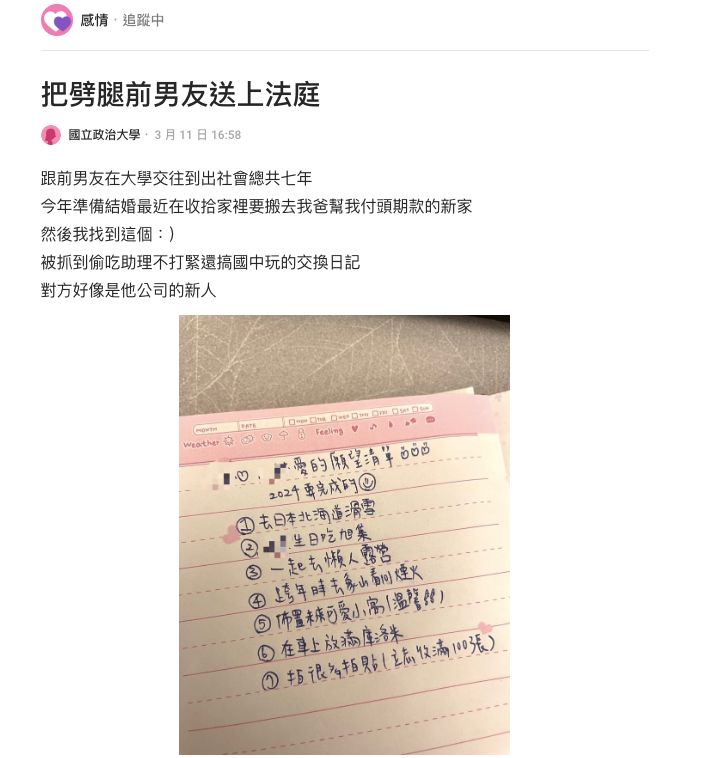 感情 · 追蹤中
把劈腿前男友送上法庭
國立政治大學 · 3 月 11 日 16:58
跟前男友在大學交往到出社會總共七年
今年準備結婚最近在收拾家裡要搬去我爸幫我付頭期款的新家
然後我找到這個：）
被抓到偷吃助理不打緊還搞國中玩的交換日記
對方好像是他公司的新人
MONTH DATE MON TUE WED THU FRI SAT SUN
Weather Feeling
愛的願望清單
2024要完成的
① 去日本北海道滑雪
② 生日吃旭集
③ 一起去懶人露營
④ 跨年時去象山看煙火
⑤ 佈置可愛小窩(溫馨
⑥ 在車上放滿庫洛米
⑦ 拍很多拍貼(立志收滿100張)